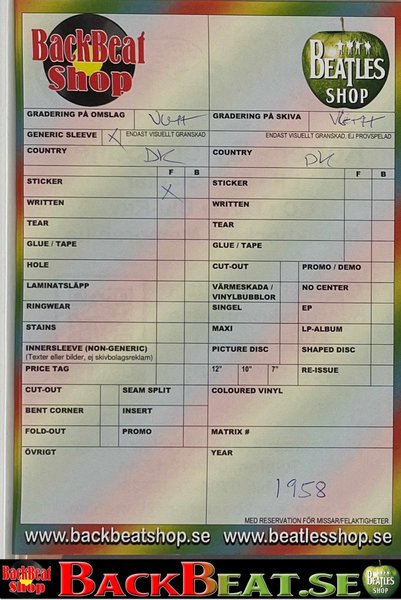 BackBeat
Shop
BEATLES
SHOP
GRADERING PÅ OMSLAG
GRADERING PÅ SKIVA
GENERIC SLEEVE X ENDAST VISUELLT GRANSKAD
ENDAST VISUELLT GRANSKAD, EJ PROVSPELAD
COUNTRY DK
COUNTRY DK
F B
F B
STICKER X
STICKER
WRITTEN
WRITTEN
TEAR
TEAR
GLUE / TAPE
GLUE / TAPE
HOLE
CUT-OUT PROMO / DEMO
LAMINATSLÄPP
VÄRMESKADA /
VINYLBUBBLOR
NO CENTER
RINGWEAR
SINGEL EP
STAINS
MAXI LP-ALBUM
INNERSLEEVE (NON-GENERIC)
(Texter eller bilder, ej skivbolagsreklam)
PICTURE DISC SHAPED DISC
PRICE TAG
12" 10" 7" RE-ISSUE
CUT-OUT SEAM SPLIT
COLOURED VINYL
BENT CORNER INSERT
FOLD-OUT PROMO
MATRIX #
ÖVRIGT
YEAR
1958
MED RESERVATION FÖR MISSAR/FELAKTIGHETER
www.backbeatshop.se www.beatlesshop.se
BackBeat
Shop
BACKBEAT.SE
BEATLES
SHOP